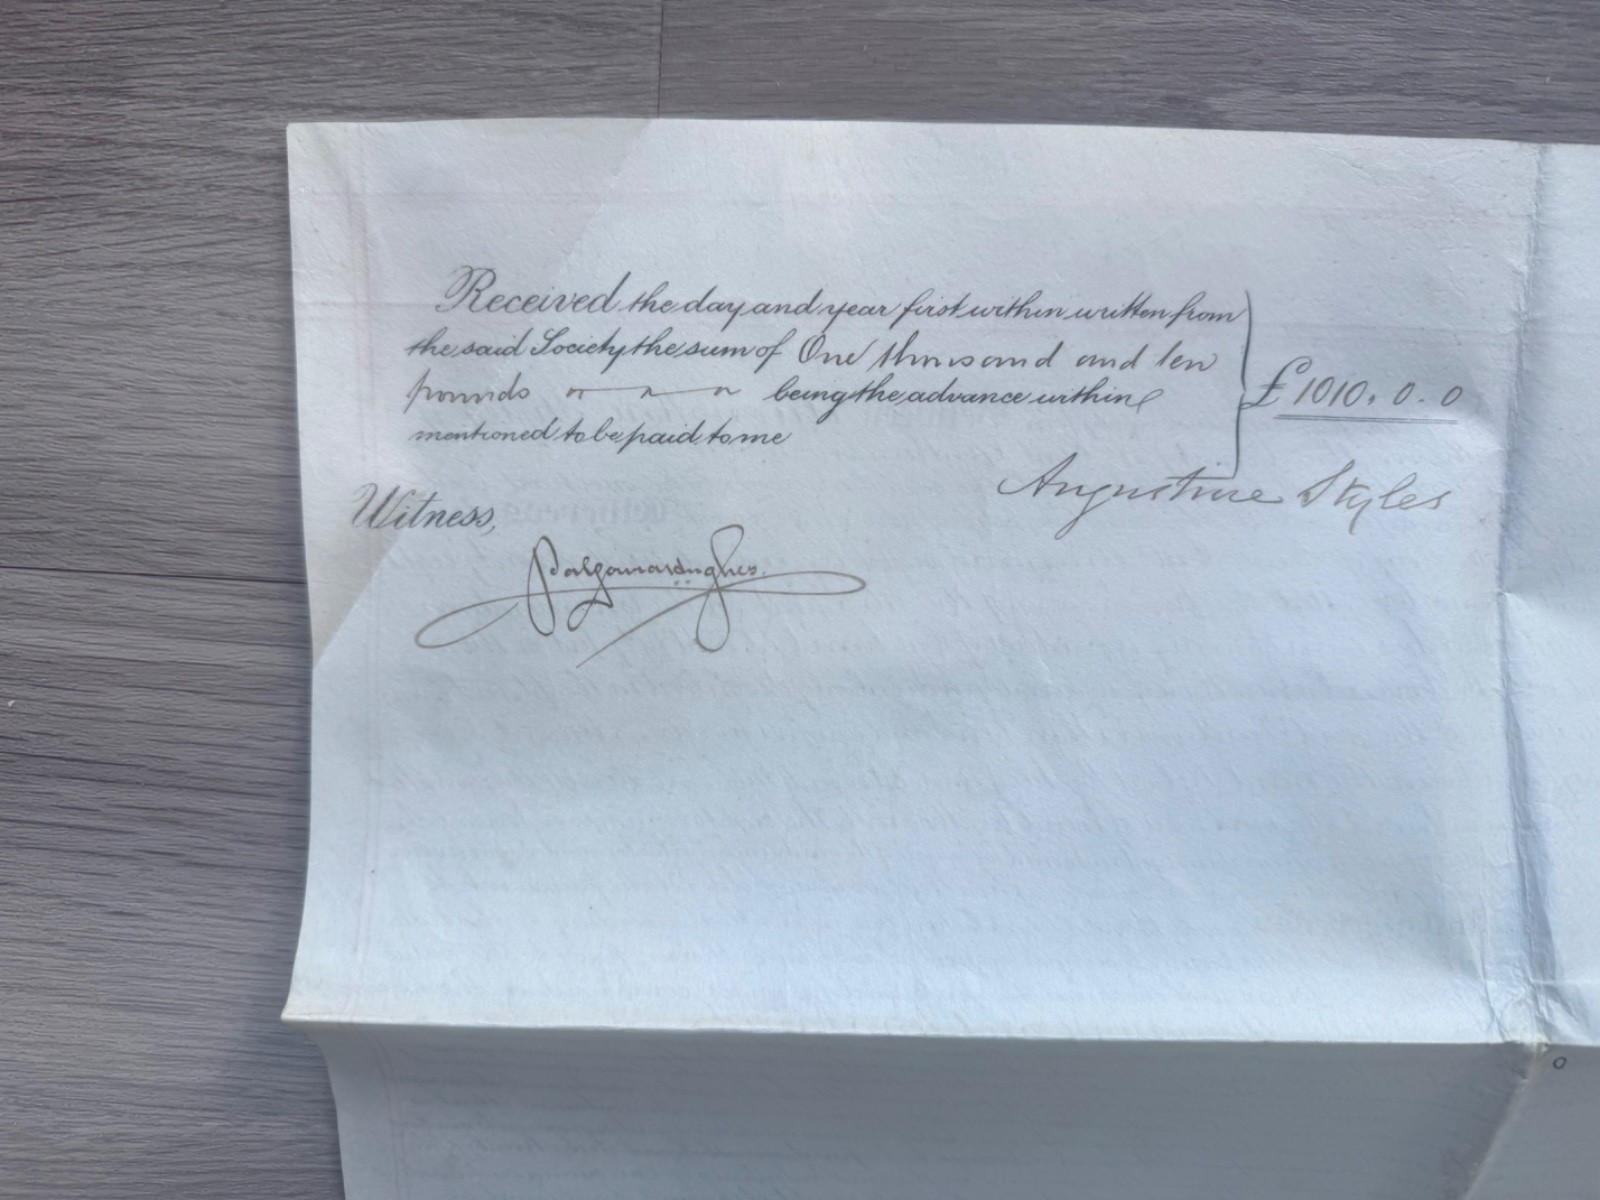 Received the day and year first within written from
the said Society the sum of One thousand and ten
pounds being the advance within
mentioned to be paid to me
£1010. 0. 0
Augustine Styles
Witness,